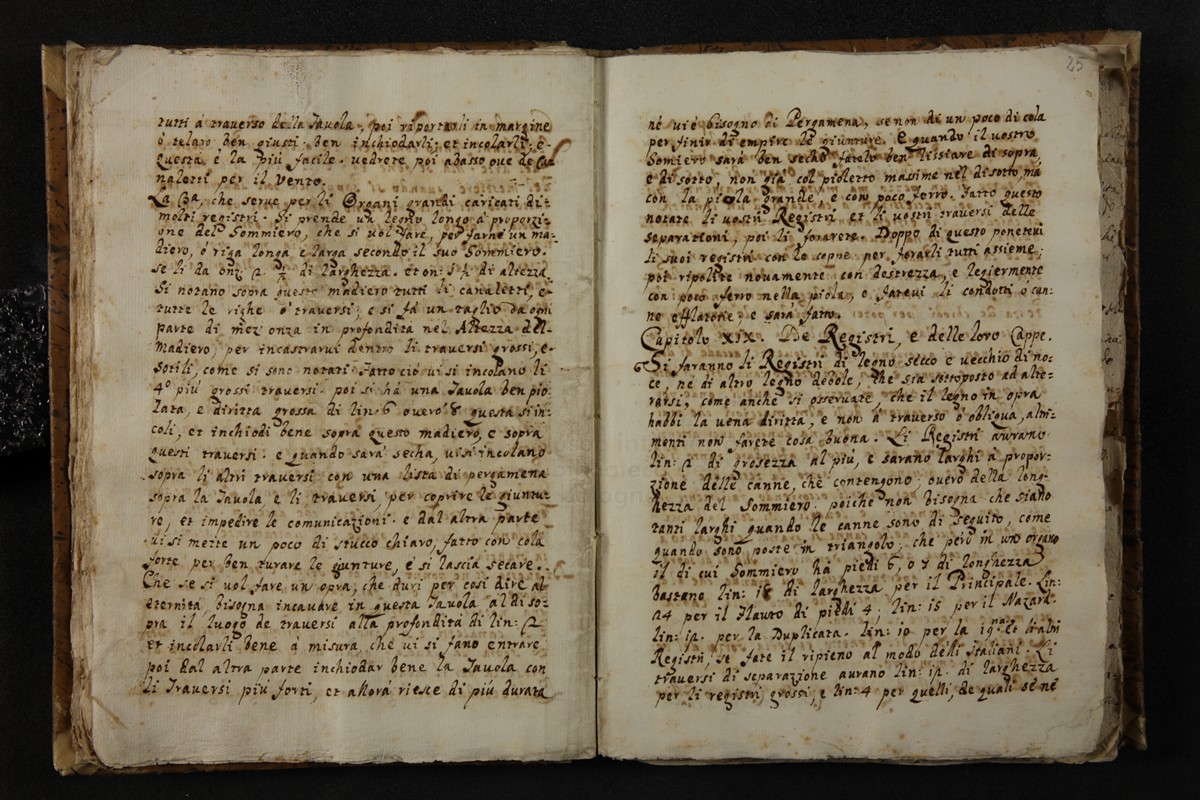 tutti á traverso della Tavola, poi riportarli in margine
ó telaro ben giusti; ben inchiodarli; et incolarli; é
questa é la piú facile. vedrete poi abasso que de Ca-
naletti per il vento.
La 3a, che serve per li Organi grandi caricati di
molti registri. Si prende un legno longo á proporzi-
one del Sommiero, che si vol fare, per farne un ma-
diero, ó riga longa e larga secondo il suo Sommiero.
se li da onz: 2 ½ di larghezza. et on: 1 ½ di altezza.
Si notano sopra questo madiero tutti li canaletti, e
tutte le righe ó traversi; e si fá un taglio da ogni
parte di mez' onza in profonditá nel Altezza del
madiero, per incastrarvi dentro li traversi grossi, e
sotili, come si sono notati. Fatto ció vi si incolano li
4º piú grossi traversi. poi si há una Tavola ben pio-
lata, e diritta grossa di lin: 6 overó 8 questa si in-
coli, et inchiodi bene sopra questo madiero, e sopra
questi traversi. e quando sará secha, vi si incolano
sopra li altri traversi con una lista di pergamena
sopra la Tavola e li traversi, per coprire le giuntu-
re, et impedire le comunicazioni. e dal altra parte
vi si mette un poco di stucco chiaro, fatto con cola
forte per ben turare le giunture, e si lascia secare.
Che se si vol fare un opra, che duri per cosi dire al
eternitá bisogna incavare in questa Tavola al di so-
pra il luogo de traversi alla profonditá di lin: 2
et incolarli bene á misura, che vi si fano entrare,
poi dal altra parte inchiodar bene la Tavola con
li Traversi piu forti, et allora riesce di piú durata
25
né vi é bisogno di Pergamena, se non di un poco di cola
per finir di empire le giunture. E quando il vostro
Somiero sará ben secho fatelo ben lissiare di sopra,
e di sotto, non giá col pioletto massime nel di sotto, má
con la piola grande, e con poco ferro. Fatto questo
notate li vostri Registri et li vostri traversi delle
separationi, poi li forarete. Doppo di questo ponetevi
li suoi registri con le coppe per forarli tutti assieme;
poi ripolite novamente con destrezza, e legiermente
con poco ferro nella piola, e fatevi li condotti ó can-
ne efflatorie, e sará fatto.
Capitolo XIX. De Registri, e delle loro Cappe.
Si faranno li Registri di legno secco e vecchio di no-
ce, né di altro legno debole, che sia sottoposto ad alte-
rarsi, come anche si osservate, che il legno in opra
habbi la vena diritta, e non á traverso ó obliqua, altri-
menti non farete cosa buona. Li Registri avrano
lin: 2 di grosezza al piú, e sarano larghi á propor-
zione delle canne, che contengono; overo della long-
hezza del Sommiero. poiche non bisogna che siano
tanti larghi quando le canne sono di seguito, come
quando sono poste in triangolo; che peró in uno organo
il di cui Sommiero há piedi 6, o 7 di longhezza
bastano lin: 18 di larghezza per il Principale. Lin:
24 per il Flauto di piedi 4; lin: 15 per il Nazard.
lin: 12. per la Duplicata. lin: 10 per la 19na et li altri
Registri, se fate il ripieno al modo delli Italiani. Li
traversi di separazione aurano lin: 12. di larghezza
per li registri grossi, e lin: 4 per quelli, de quali se né